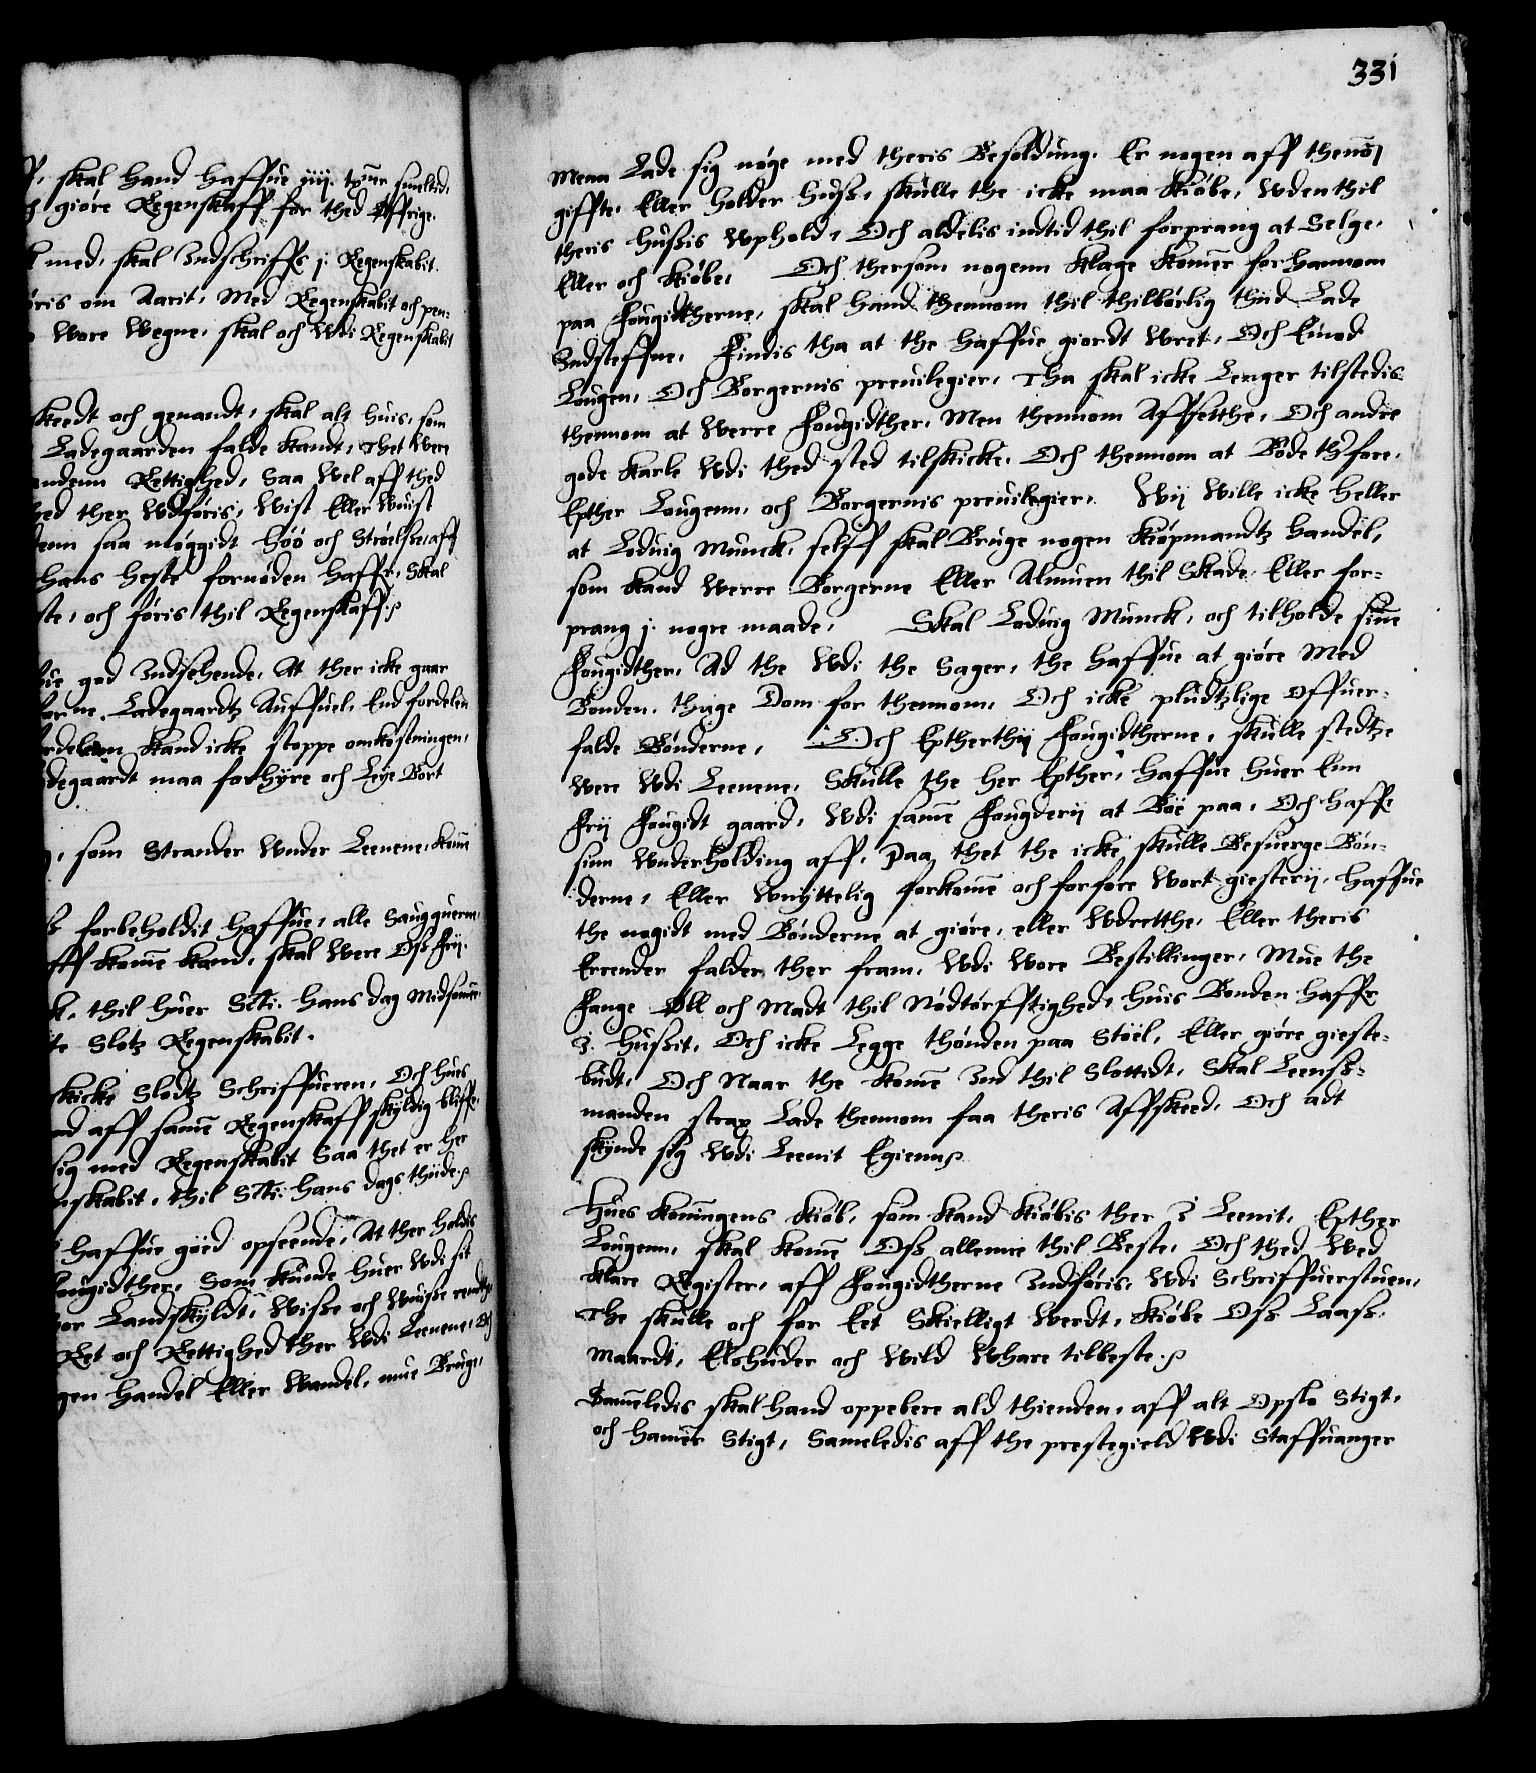 skal hand haffue iiij. tønr smeltid,
giøre Regenskaff for thed Øffrige.
med, skal Indschriffs j. Regenskabit.
øris om Aarit, Med Regenskabit och pen-
Wore Wegne, skal och Wdi Regenskabit
skeedt och genandt, skal alt huis, som
Ladegaarden falde kandt, Thet Were
andenn Rettighed, Saa Wel aff thed
hed ther Wdføris, Wist Eller Wuist
denn saa møggidt Høø och Strøelse, aff
hans heste fornøden haffr, Skal
ste, och føris thil Regenskaff
ue god Indsehende, At ther icke gaar
forne. Ladegaardtz Auffuel, End fordelen
rdelenn kand icke stoppe omkostningen,
degaardt maa forhyre och Leye Bort
som Strander Wnder Leenene, kome
s forbeholdit haffue, alle Saugquerne,
aff kome kand, skal Were Oss frij.
k, thil huer Scti. Hans dag Midsomer,
te Slotz Regenskabit.
skicke Slodtz Schriffueren, Och hues
nd aff same Regenskaff skyldig bliffr,
sig med Regenskabit Saa thet er her
nskabit, thil Scti: Hans dags thiide
haffue goed opseende, At ther holdis
fougidther, Som kunde huer Wdi sit
or Landskyldt, Wisse och Wuisse rendthe
Ret och Rettighed ther Wdi Leenene, Och
gen Handel Eller Wandel, mue Bruge,
331
Menn Lade sig nøge med theris Besoldung. Er nogen aff thenom
giffte, Eller Holder Huss, skulle the icke maa Kiøbe, Wden thil
theris Hussis Wphold, Och aldelis indtid thil forprang at Selge,
Eller och Kiøbe, Och thersom nogenn Klage Komer for hannom
paa Fougidtherne, skal hand thennom thil thilbørlig thiid Lade
Indsteffne, Findis tha at the haffue giordt Wret, Och Emod
Lougen, Och Borgernis preuilegier, Tha skal icke Lenger tilstedis
thennom at Werre Fougidther, Men thennom Affsetthe, Och andre
gode karle Wdi thed sted tilskicke, Och thennom at Bøde therfore,
Epther Lougenn, och Borgernis preuilegier. Wij Wille icke heller
at Loduig Munck, selff skal Bruge nogen Kiøpmandtz Handel,
som kand Werre Borgerne Eller Almuen thil Skade, Eller for-
prang j. nogre maade, Skal Loduig Munck, och tilholde sinne
Fougidther, Ad the Wdi the Sager, the haffue at giøre Med
Bonden, thage Dom for thennom, Och icke pludtzlige Offuer-
falde Bønderne, Och Eptherthij Fougidtherne, skulle stedtze
Were Wdi Leenene, Skulle the her Epther, haffue huer Enn
Frij Fougidt gaard, Wdi same Fougderij at Boe paa, Och haffe
sinn Wnderholding aff, Paa thet the icke skulle Besuerge Bøn-
derne, Eller Wnyttelig forkome och forføre Wort giesterij, Haffue
the nogidt med Bønderne at giøre, eller Wdretthe, Eller theris
Erender falder ther fram, Wdi Wore Bestillinger, Mue the
Fange Øll och Madt thil Nødtørfftighed, huis Bonden haffr
I. Hussit, Och icke Legge thønden paa Stoel, Eller giøre gieste-
budt, Och Naar the kome Ind thil Slottidt, Skal Leens-
manden strax Lade thennom faa theris Affskeed, Och adt
skynde sig Wdi Leenit Egienn
Hues Konningens Kiøb, som kand Kiøbis ther I Leenit, Epther
Lougenn, skal kome Oss allenne thil Beste, Och thed Wed
klare Register, aff Fougidtherne Indføris, Wdi Schriffuerstuen,
The skulle och for Eet Skielligt Werdt, Kiøbe Oss Laass,
Maardt, Elshuder och Wild Whare tilbeste.
Sameledis skal hand oppebere ald thienden, aff alt Opslo Stigt,
och Hamer Stigt, Sameledis aff the prestegield Wdi Staffuanger